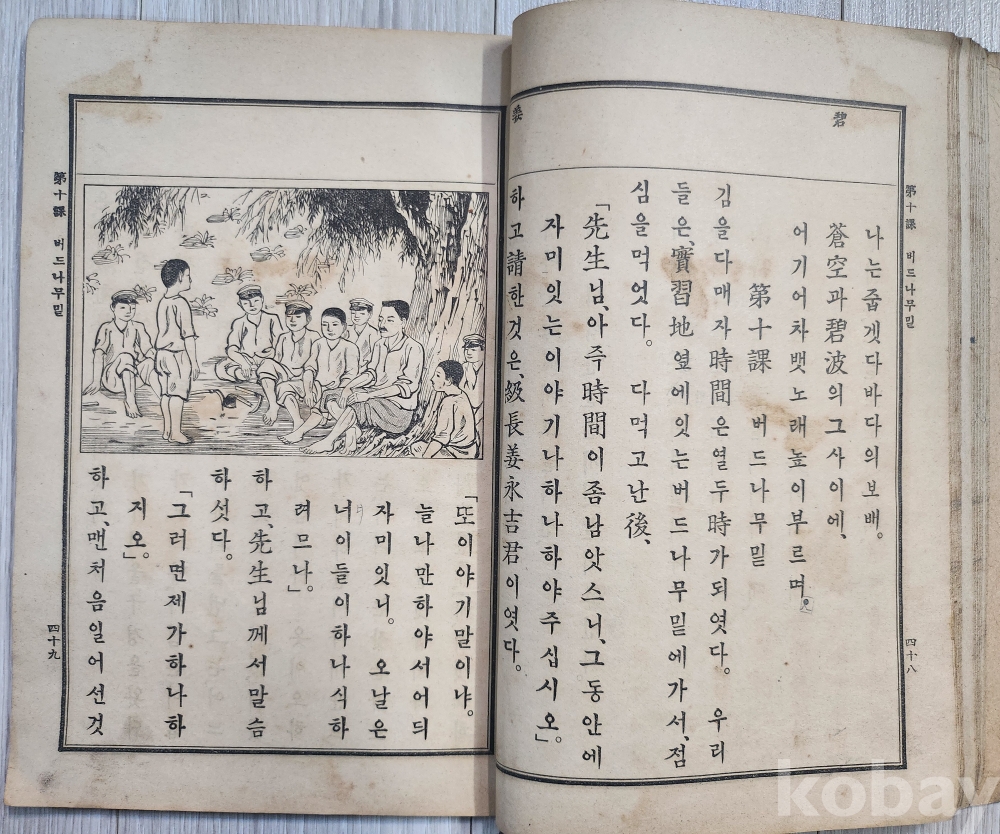 碧
姜
第十課 버드나무밑
四十八
나는줍겟다바다의보배。
蒼空과碧波의그사이에、
어기어차뱃노래높이부르며。
第十課 버드나무밑
김을다매자時間은열두時가되엿다。 우리
들은、實習地옆에잇는버드나무밑에가서、점
심을먹엇다。 다먹고난後、
「先生님、아주時間이좀남앗스니、그동안에
자미잇는이야기나하나하야주십시오」。
하고請한것은、級長姜永吉君이엿다。
第十課 버드나무밑
四十九
「또이야기말이냐。
늘나만하야서어듸
자미잇니。 오날은
너이들이하나식하
려므나」
하고、先生님께서말슴
하섯다。
「그러면제가하나하
지오」。
하고、맨처음일어선것
kobay